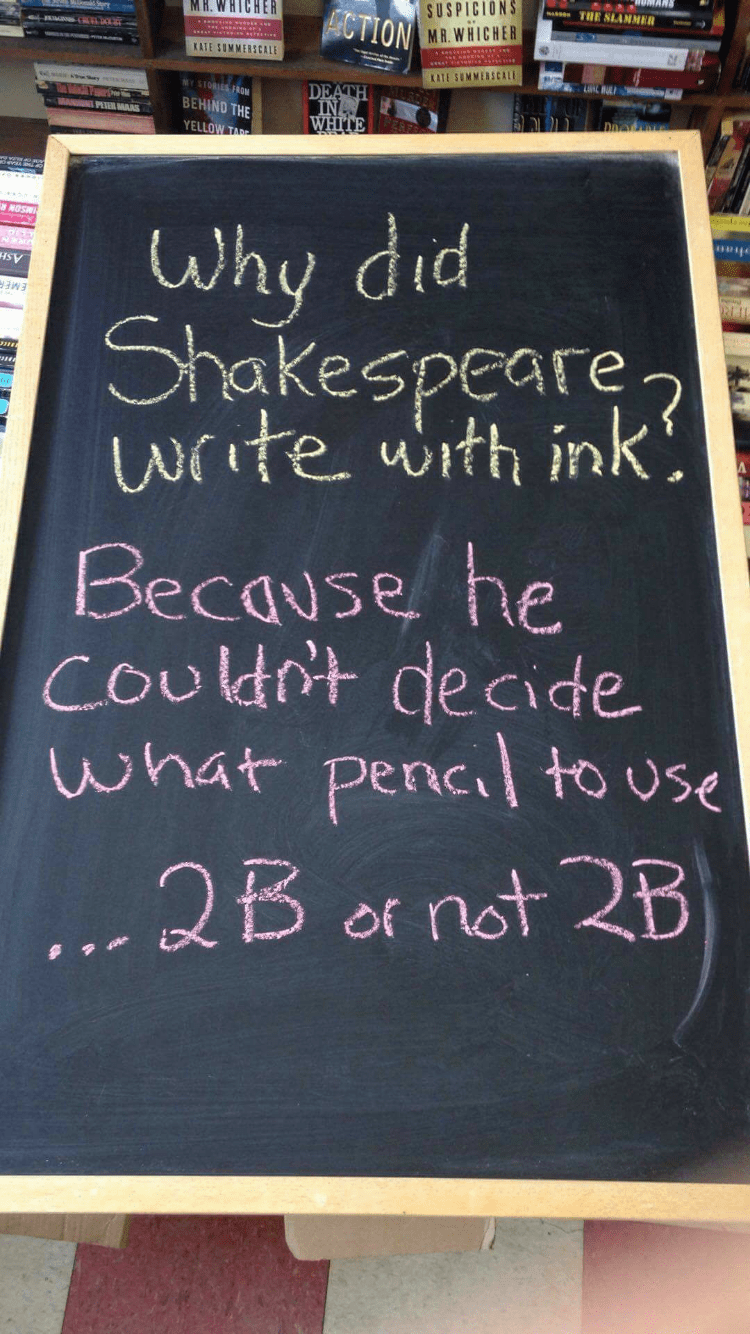 MR. WHICHER
KATE SUMMERSCALE
ACTION
SUSPICIONS
MR. WHICHER
KATE SUMMERSCALE
THE SLAMMER
PETER MAAS
MY STORIES FROM
BEHIND THE
YELLOW TAPE
DEATH
IN
WHITE
Why did
Shakespeare
write with ink?
Because he
couldn't decide
what pencil to use
... 2B or not 2B